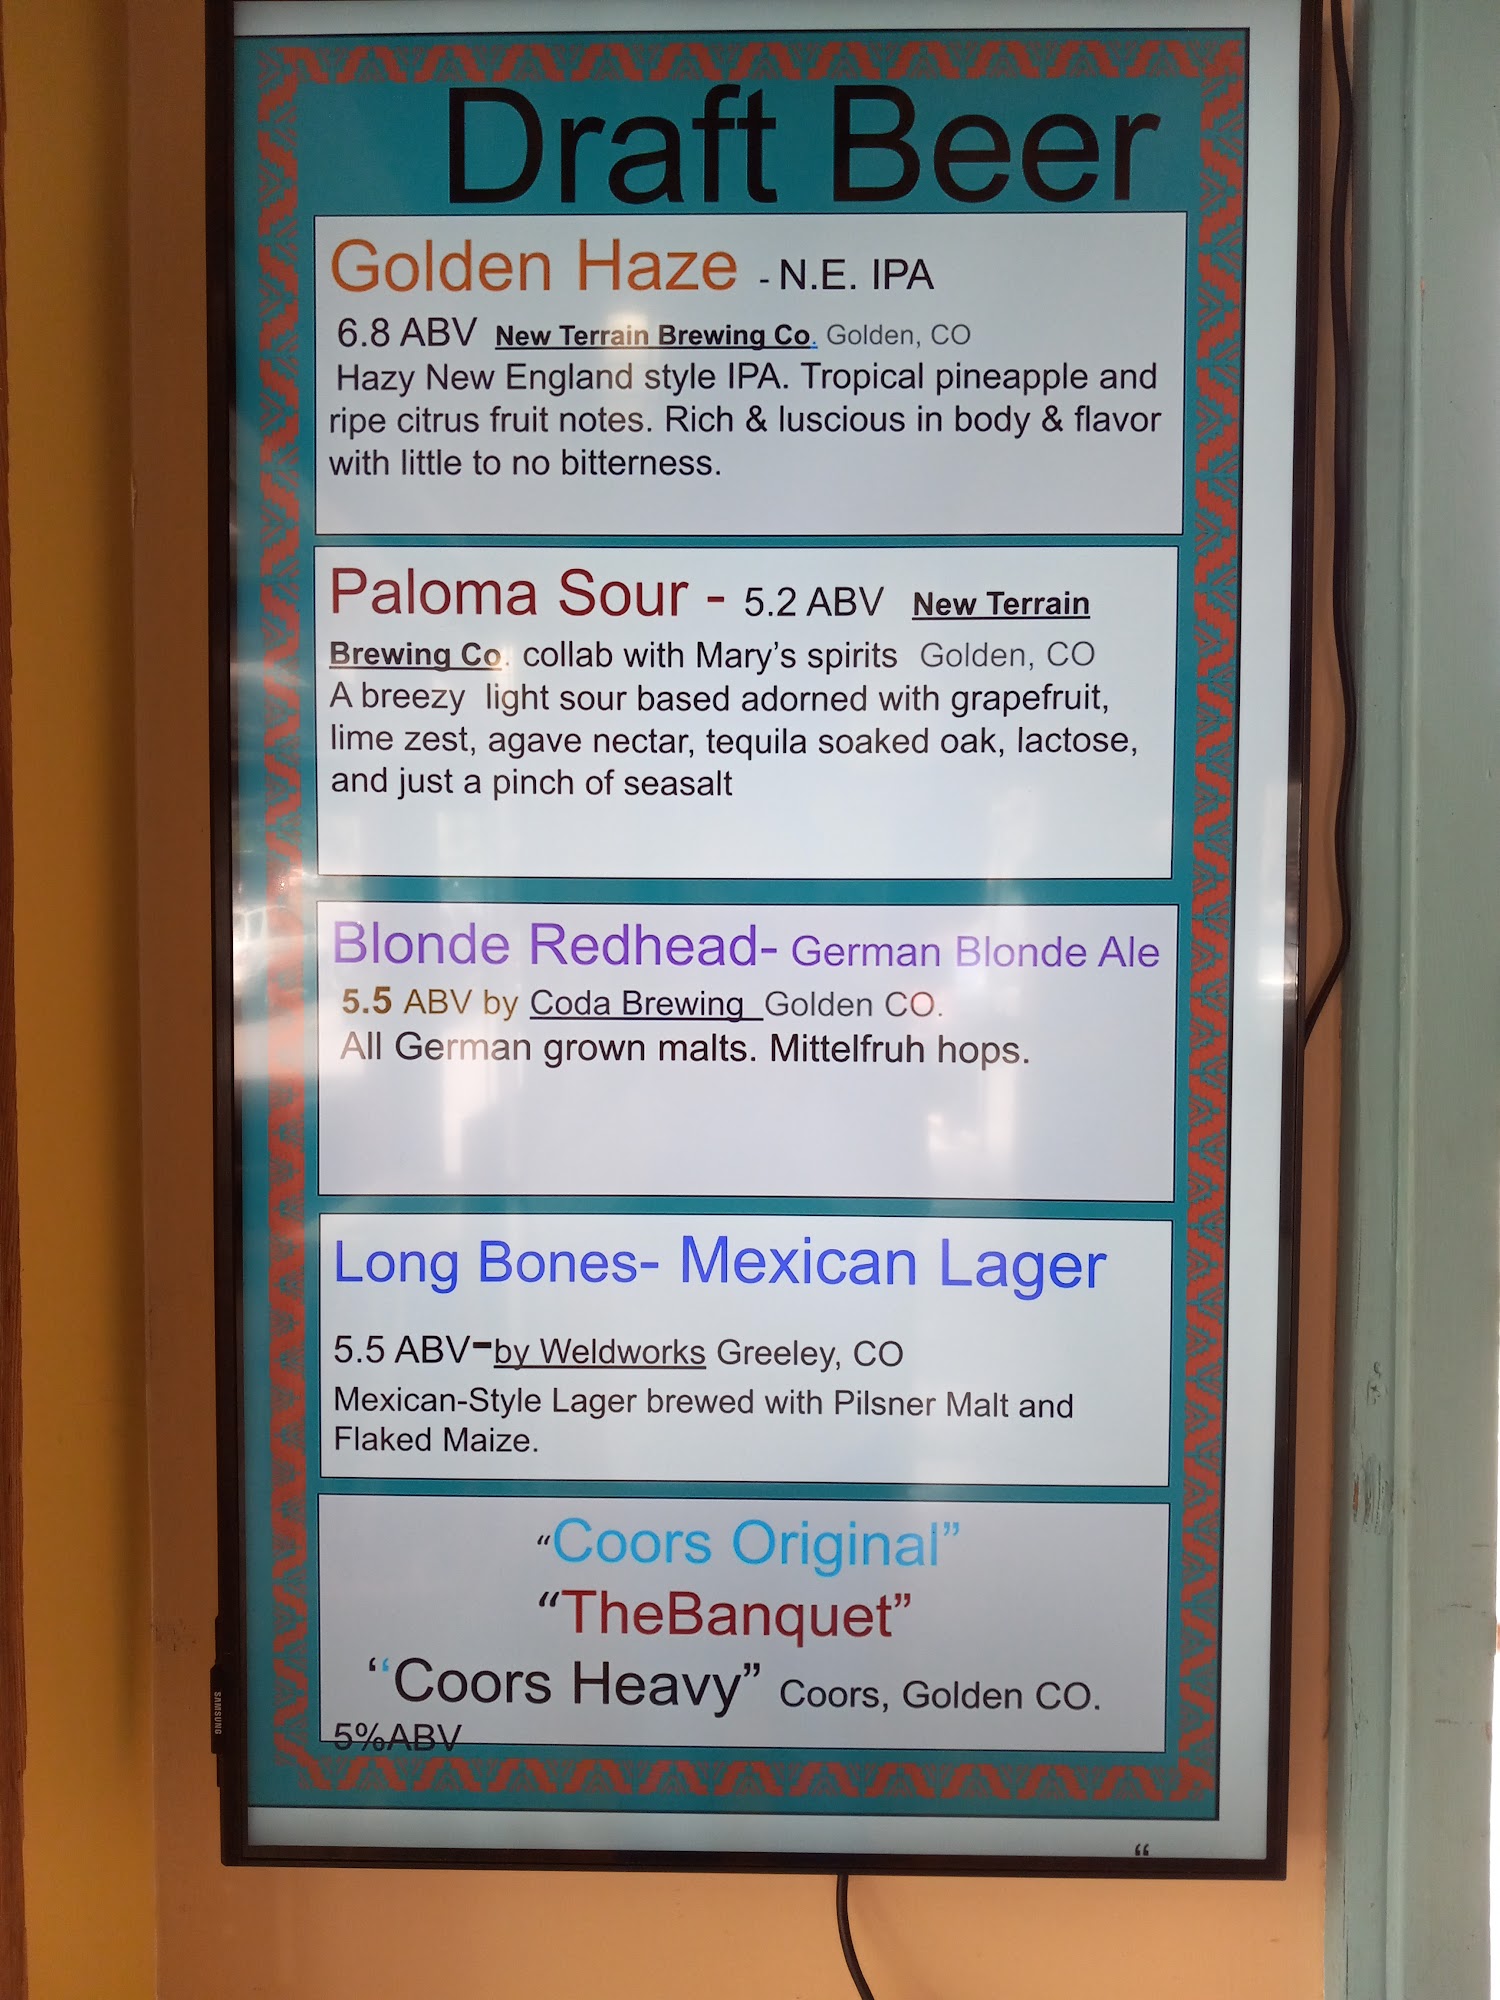 Draft Beer
Golden Haze - N.E. IPA
6.8 ABV New Terrain Brewing Co. Golden, CO
Hazy New England style IPA. Tropical pineapple and
ripe citrus fruit notes. Rich & luscious in body & flavor
with little to no bitterness.
Paloma Sour - 5.2 ABV New Terrain
Brewing Co. collab with Mary's spirits Golden, CO
A breezy light sour based adorned with grapefruit,
lime zest, agave nectar, tequila soaked oak, lactose,
and just a pinch of seasalt
Blonde Redhead- German Blonde Ale
5.5 ABV by Coda Brewing Golden CO.
All German grown malts. Mittelfruh hops.
Long Bones- Mexican Lager
5.5 ABV-by Weldworks Greeley, CO
Mexican-Style Lager brewed with Pilsner Malt and
Flaked Maize.
“Coors Original”
“TheBanquet”
‘‘Coors Heavy” Coors, Golden CO.
5%ABV
SAMSUNG
“